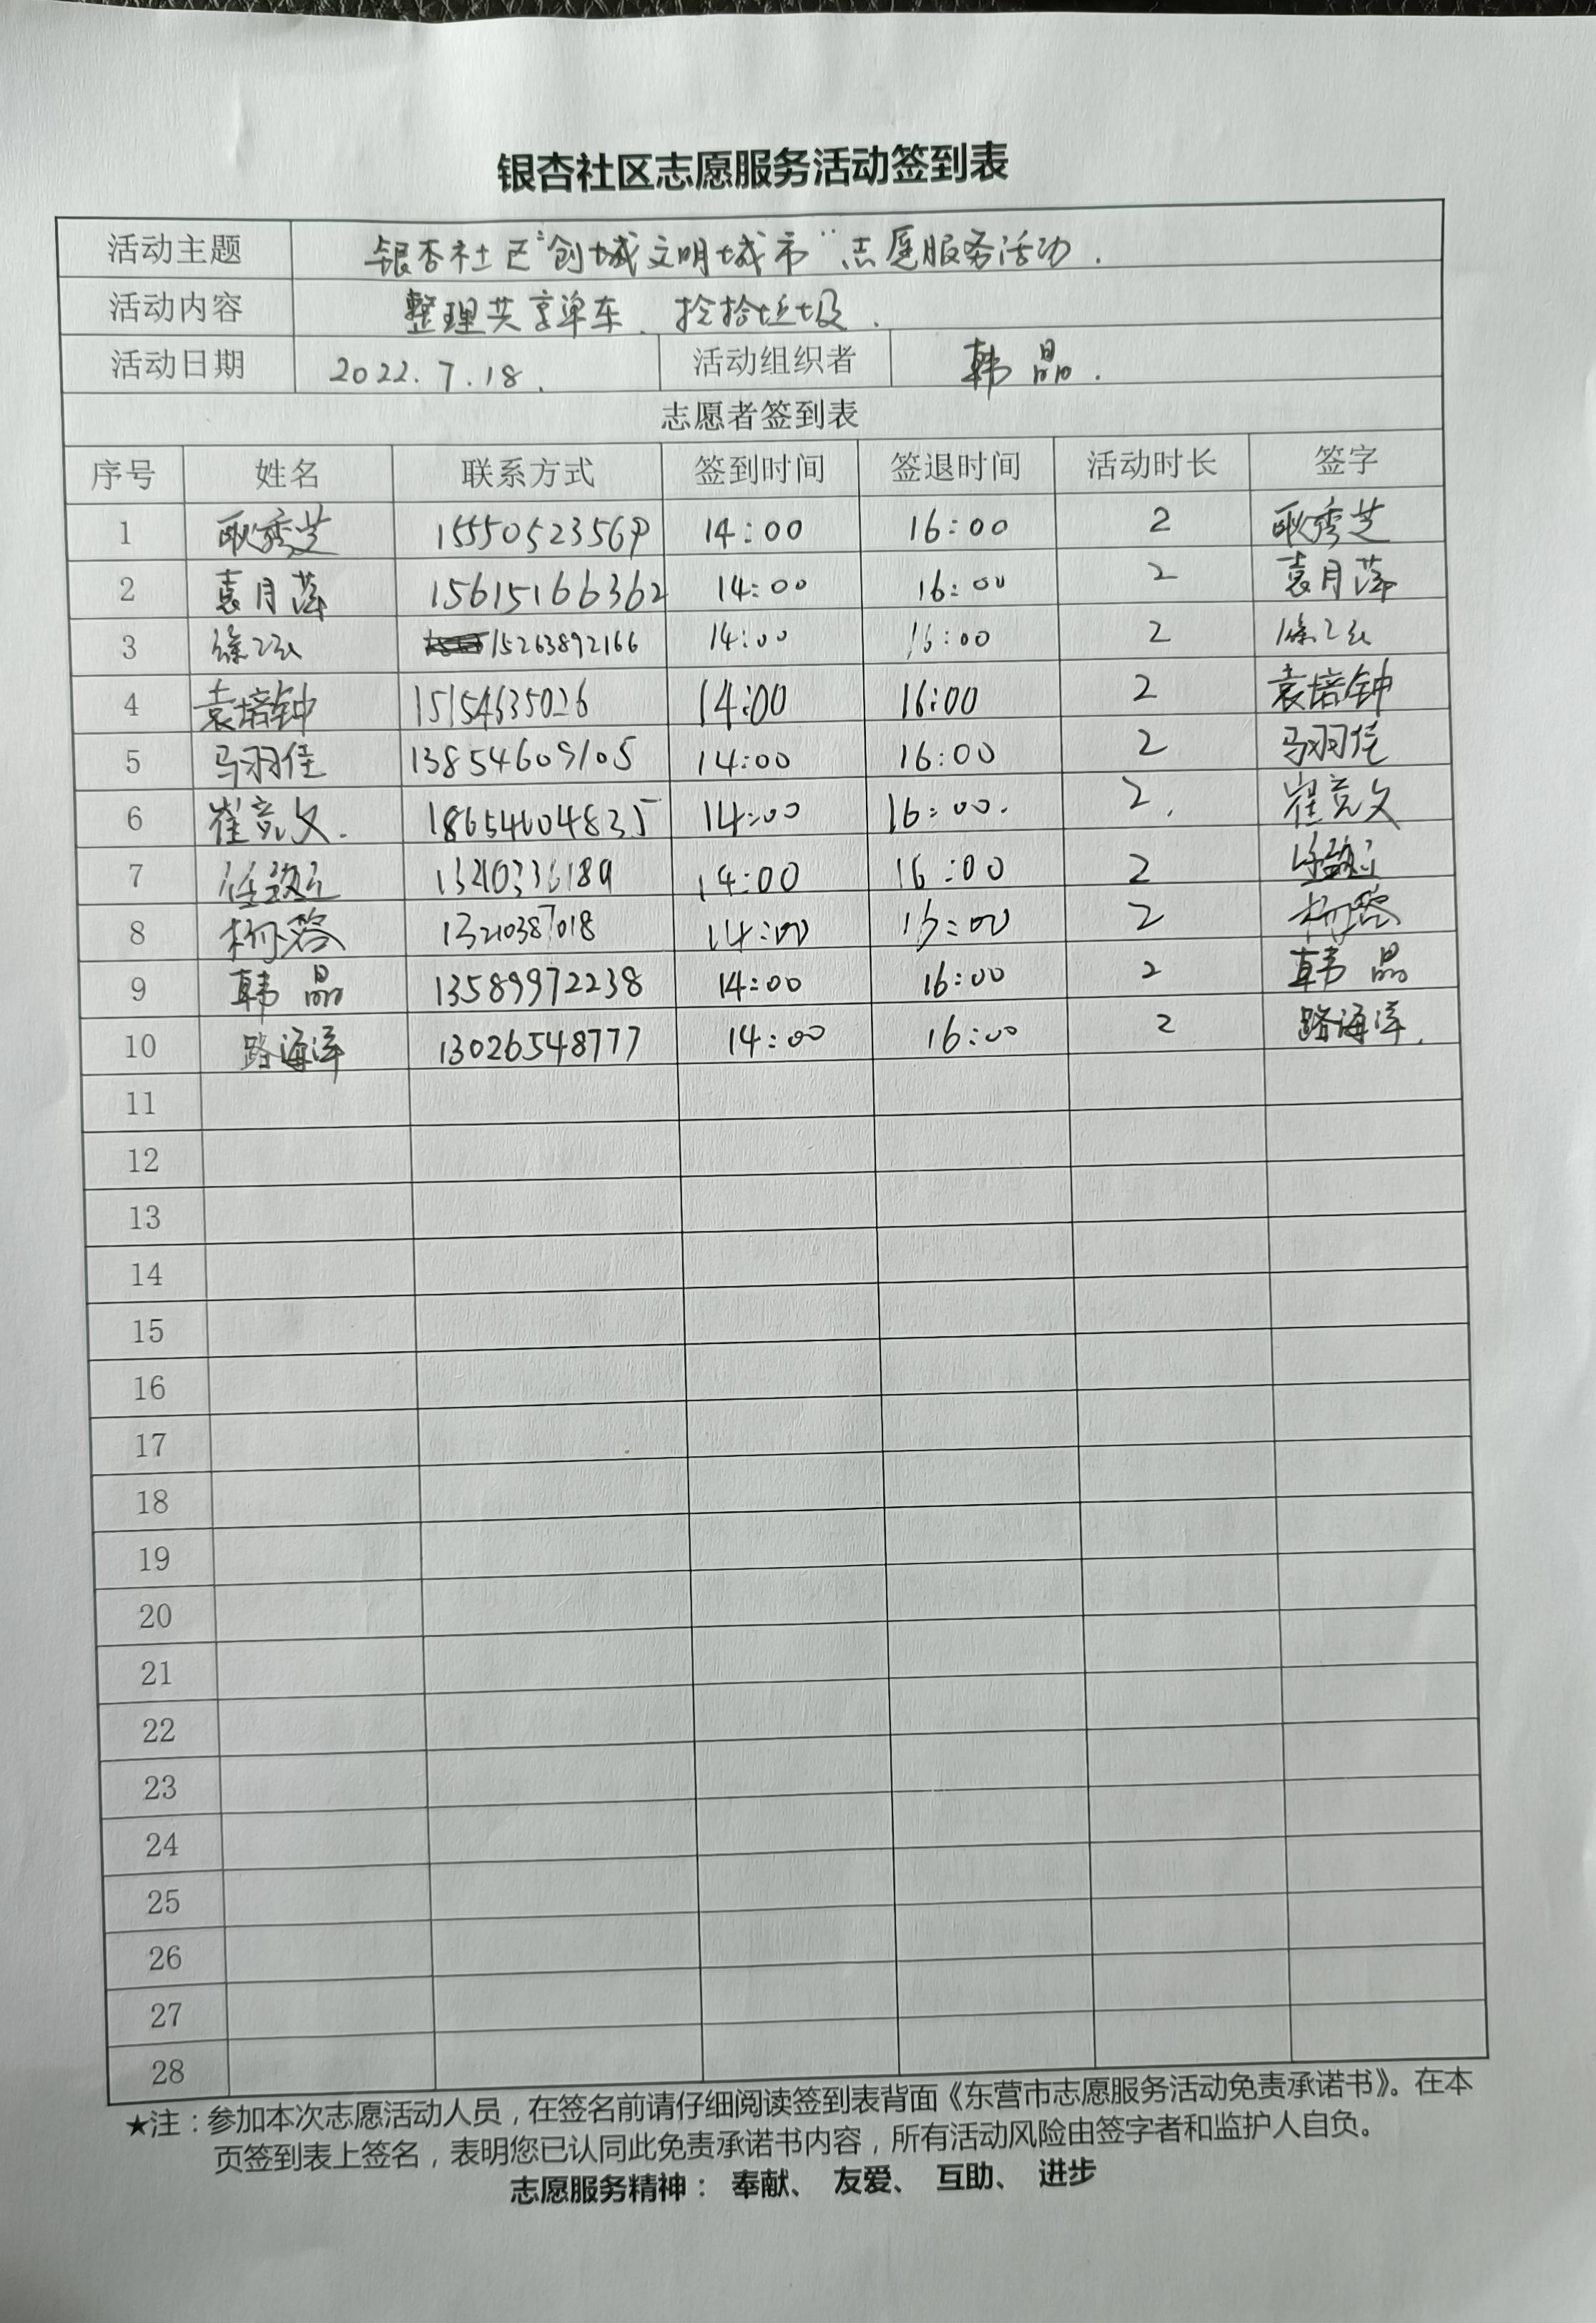 银杏社区志愿服务活动签到表
活动主题 银杏社区"创城文明城市"志愿服务活动.
活动内容 整理共享单车、捡拾垃圾.
活动日期 2022.7.18. 活动组织者 韩晶.
志愿者签到表
序号 姓名 联系方式 签到时间 签退时间 活动时长 签字
1 耿秀芝 15550523569 14:00 16:00 2 耿秀芝
2 袁月萍 15615166362 14:00 16:00 2 袁月萍
3 15263892166 14:00 16:00 2
4 袁培钟 15154635026 14:00 16:00 2 袁培钟
5 马羽佳 13854609105 14:00 16:00 2 马羽佳
6 崔竞文. 18654604835 14:00 16:00. 2. 崔竞文
7 14:00 16:00 2
8 13210387018 14:00 16:00 2
9 韩晶 13589972238 14:00 16:00 2 韩晶
10 路海洋 13026548777 14:00 16:00 2 路海洋.
11
12
13
14
15
16
17
18
19
20
21
22
23
24
25
26
27
28
★注：参加本次志愿活动人员，在签名前请仔细阅读签到表背面《东营市志愿服务活动免责承诺书》。在本
页签到表上签名，表明您已认同此免责承诺书内容，所有活动风险由签字者和监护人自负。
志愿服务精神： 奉献、 友爱、 互助、 进步